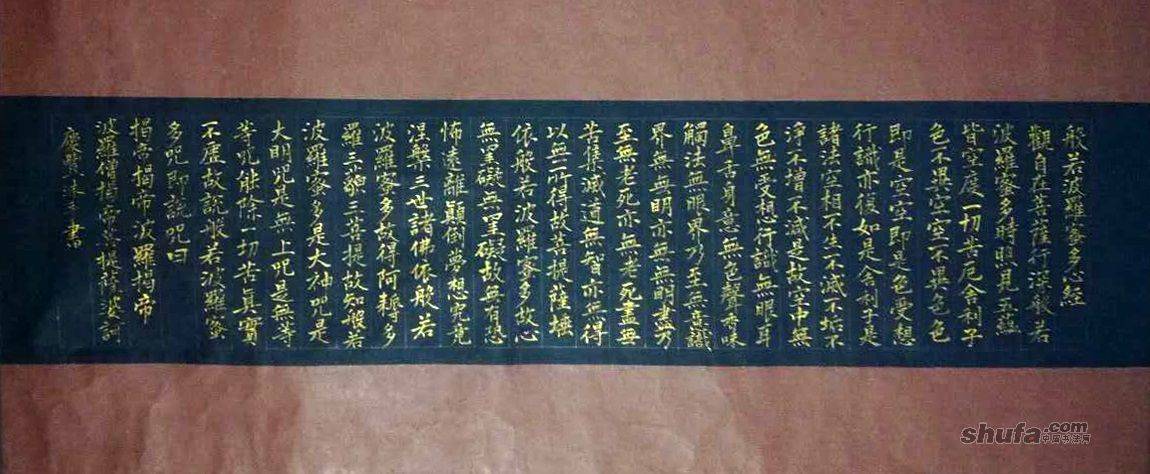 般若波羅蜜多心經
觀自在菩薩行深般若
波羅蜜多時照見五蘊
皆空度一切苦厄舍利子
色不異空空不異色色
即是空空即是色受想
行識亦復如是舍利子是
諸法空相不生不滅不垢不
淨不增不減是故空中無
色無受想行識無眼耳
鼻舌身意無色聲香味
觸法無眼界乃至無意識
界無無明亦無無明盡乃
至無老死亦無老死盡無
苦集滅道無智亦無得
以無所得故菩提薩埵
依般若波羅蜜多故心
無罣礙無罣礙故無有恐
怖遠離顛倒夢想究竟
涅槃三世諸佛依般若
波羅蜜多故得阿耨多
羅三藐三菩提故知般若
波羅蜜多是大神咒是
大明咒是無上咒是無等
等咒能除一切苦真實
不虛故說般若波羅蜜
多咒即說咒曰
揭帝揭帝波羅揭帝
波羅僧揭帝菩提薩婆訶
書
shufa.com
中国书法网